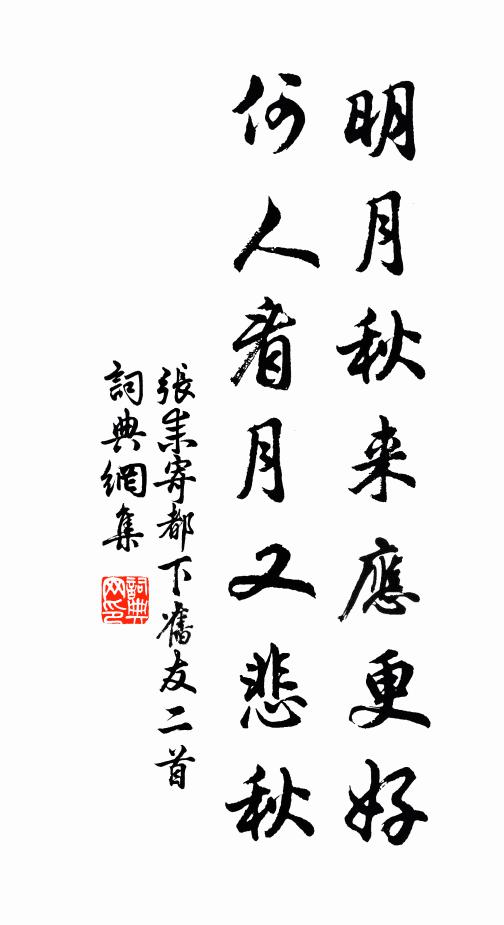 明月秋来應更好
何人看月又悲秋
張耒寄都下舊友二首
詞典網集
詞典網印